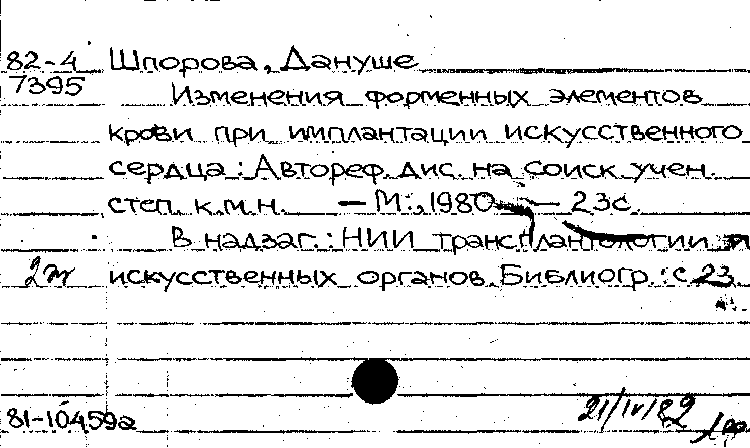 82-4 Шпорова, Дануше
7395
Изменения форменных элементов
крови при имплантации искусственного
сердца: Автореф. дис. на соиск. учен.
степ. к.м.н. — М., 1980. — 23с.
В надзаг.: НИИ трансплантологии и
2 искусственных органов. Библиогр.: с 23
81-10459а 21/IV/82